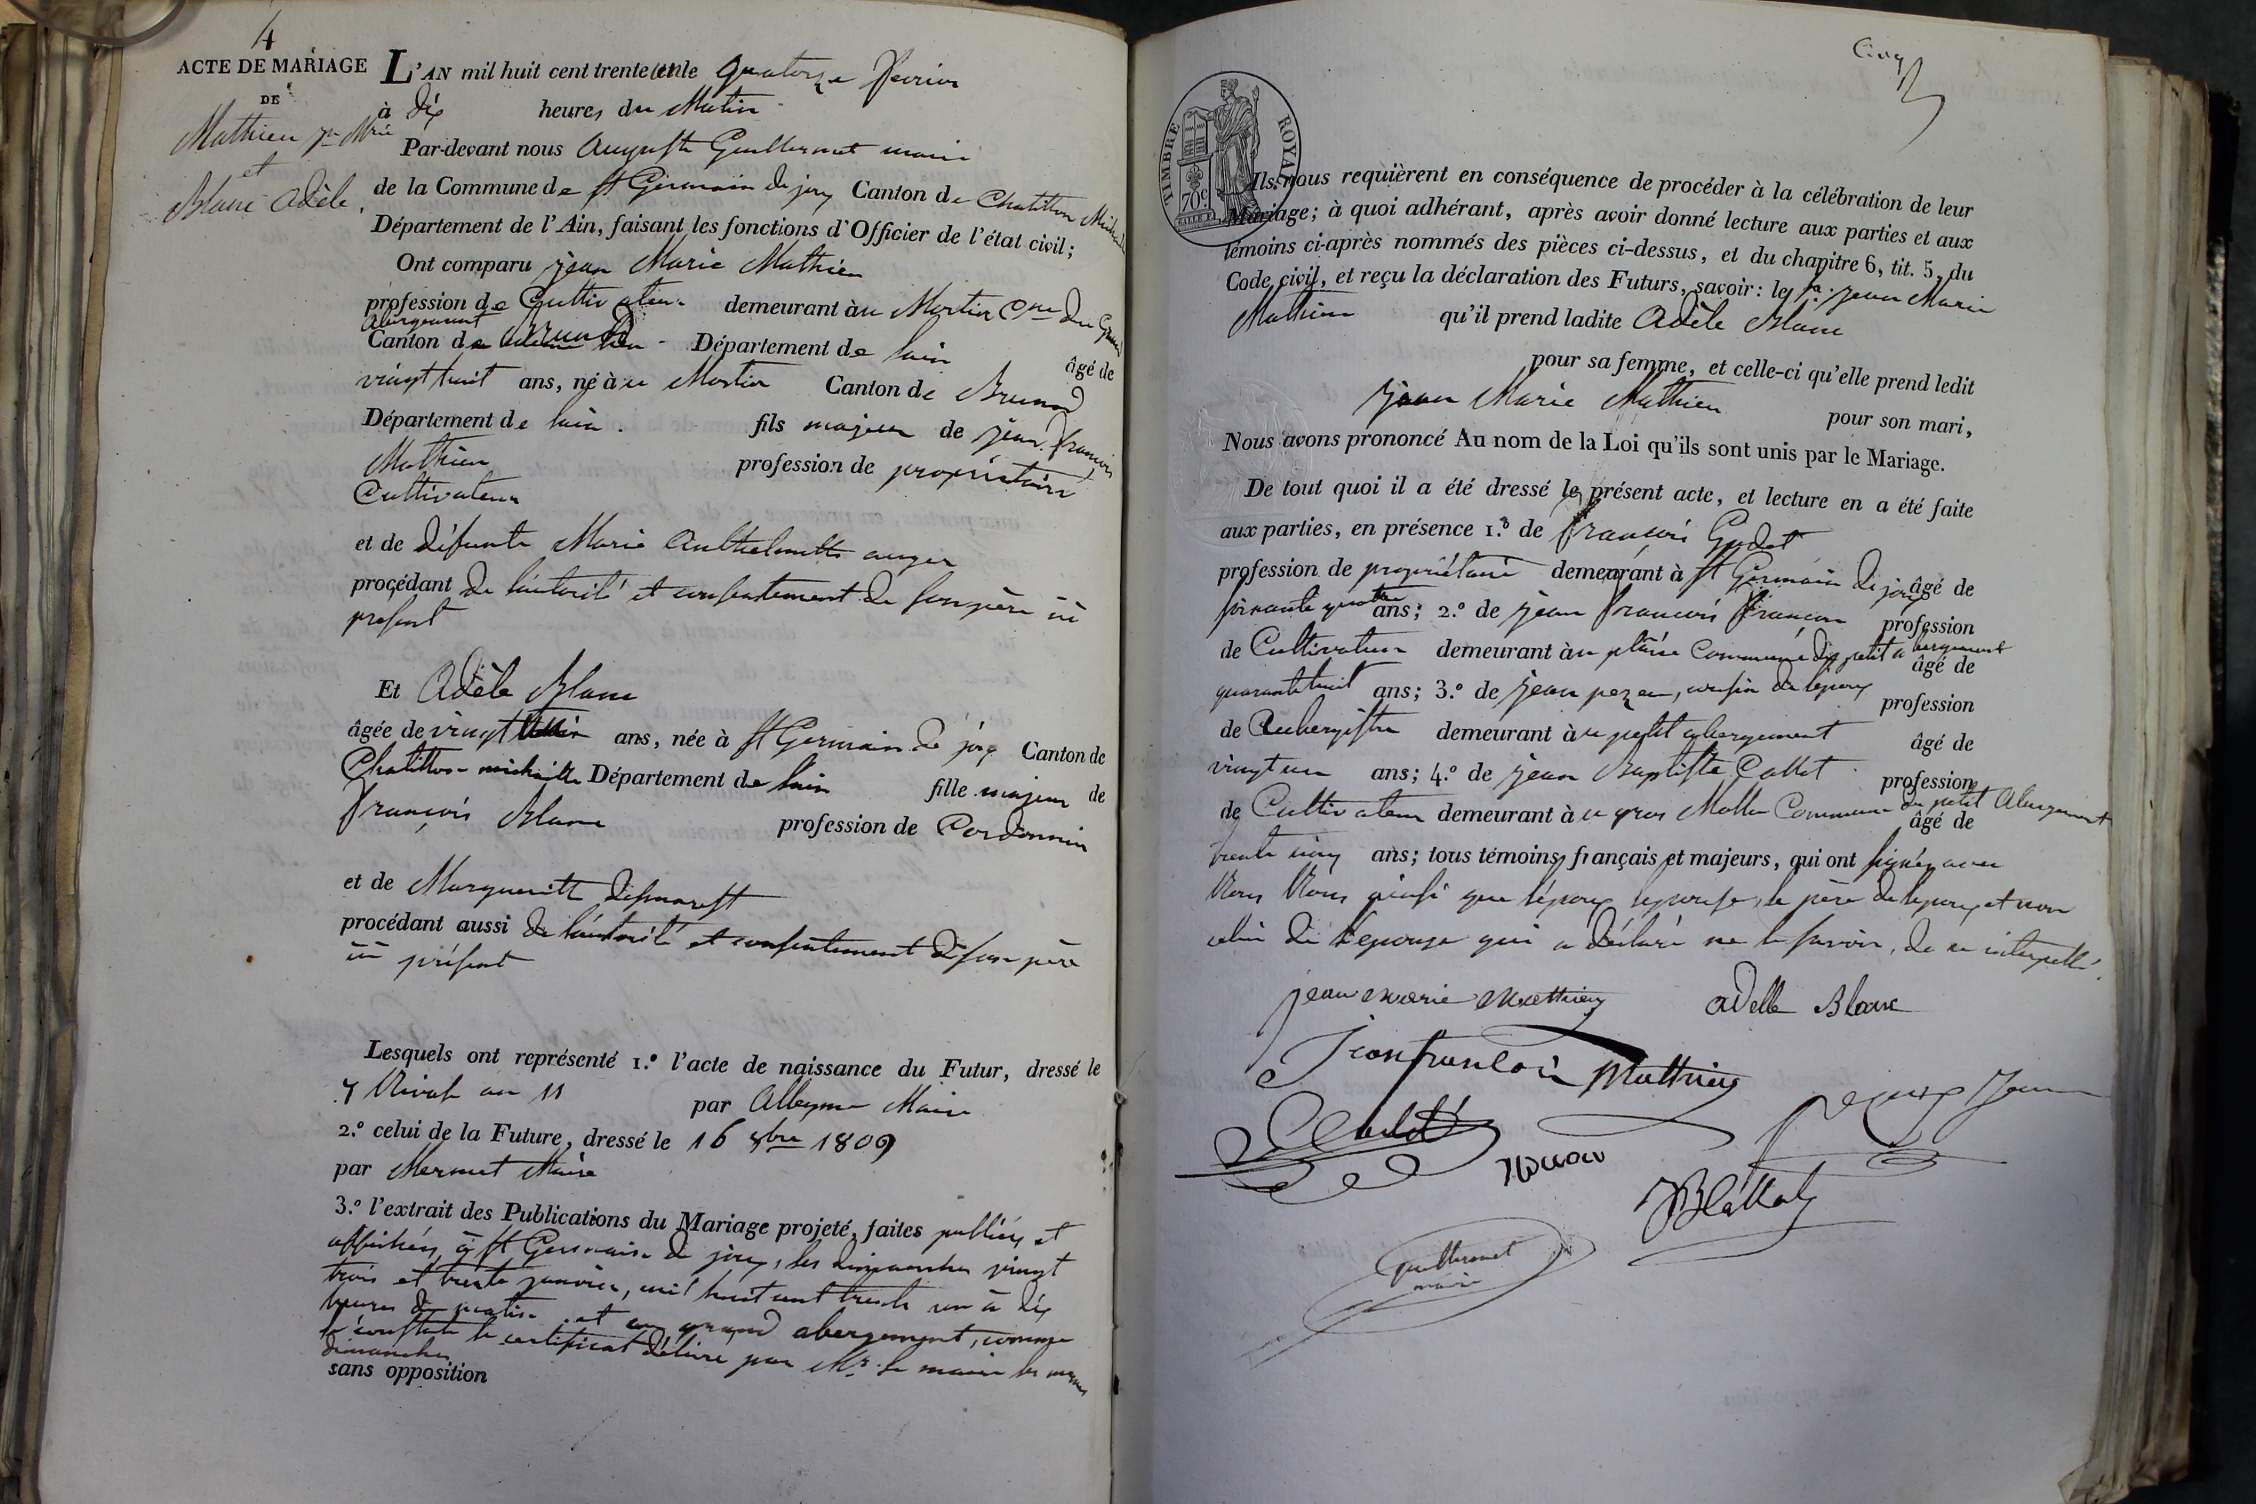 4
ACTE DE MARIAGE
DE
Mathieu Jn Mrie
et
Blanc Adèle
L'AN mil huit cent trente un le quatorze fevrier
à dix heures du Matin
Par-devant nous Auguste Guillermet maire
de la Commune de St Germain de joux Canton de Chatillon Michaille
Département de l'Ain, faisant les fonctions d'Officier de l'état civil;
Ont comparu jean Marie Mathieu
profession de Cultivateur demeurant au Mortier Cne du Grand
abergement
Canton de Brenod Département de lain âgé de
vingt huit ans, né à u Mortier Canton de Brenod
Département de lain fils majeur de jean françois
Mathieu profession de propriétaire
Cultivateur
et de défunte Marie Anthelmette
procédant de lautorité et consentement de son père ici
présent
Et Adèle Blanc
âgée de vingt ans, née à St Germain de joux Canton de
Chatillon michaille Département de lain fille majeur de
françois Blanc profession de Cordonnier
et de Margueritte
procédant aussi de lautorité et consentement de son père
ici présent
Lesquels ont représenté 1.º l'acte de naissance du Futur, dressé le
7 Nivose an 11 par Maire
2.º celui de la Future, dressé le 16 8bre 1809
par Mermet Maire
3.º l'extrait des Publications du Mariage projeté, faites publiés et
affichés à St Germain de joux, les dimanches vingt
trois et trente janvier, mil huit cent trente un à dix
heures du matin et au grand abergement, comme
le constate le certificat délivré par Mr. le maire les mêmes
dimanches
sans opposition
Cinq
TIMBRE ROYAL
70c.
Ils nous requièrent en conséquence de procéder à la célébration de leur
Mariage; à quoi adhérant, après avoir donné lecture aux parties et aux
témoins ci-après nommés des pièces ci-dessus, et du chapitre 6, tit. 5, du
Code civil, et reçu la déclaration des Futurs, savoir: le jean Marie
Mathieu qu'il prend ladite Adèle Blanc
pour sa femme, et celle-ci qu'elle prend ledit
jean Marie Mathieu pour son mari,
Nous avons prononcé Au nom de la Loi qu'ils sont unis par le Mariage.
De tout quoi il a été dressé le présent acte, et lecture en a été faite
aux parties, en présence 1.º de françois Godet
profession de propriétaire demeurant à St Germain de joux âgé de
soixante quatre ans; 2.º de jean françois françon profession
de Cultivateur demeurant au Commune du petit abergement âgé de
quarantehuit ans; 3.º de jean cousin de lepoux profession
de Aubergiste demeurant à u petit abergement âgé de
vingt un ans; 4.º de jean Baptiste Callet profession
de Cultivateur demeurant à u gros Molle Commune du petit Abergement âgé de
trente cinq ans; tous témoins français et majeurs, qui ont signés avec
Nous ainsi que lépoux lepouse, le père de lepoux et non
celui de lepouse qui a déclaré ne le savoir, de ce interpellé.
jean marie Matthieu adelle Blanc
Jean francois Matthieu
Guillermet
maire